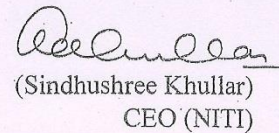 (Sindhushree Khullar)
CEO (NITI)